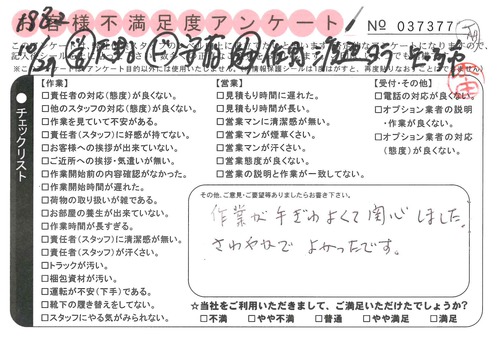 お客様不満足度アンケート
No 037377
【作業】
□責任者の対応(態度)が良くない。
□他のスタッフの対応(態度)が良くない。
□作業を見ていて不安がある。
□責任者(スタッフ)に好感が持てない。
□お客様への挨拶が出来ていない。
□ご近所への挨拶・気遣いが無い。
□作業開始前の内容確認がなかった。
□作業開始時間が遅れた。
□荷物の取り扱いが雑である。
□お部屋の養生が出来ていない。
□作業時間が長すぎる。
□責任者(スタッフ)に清潔感が無い。
□責任者(スタッフ)が汗くさい。
□トラックが汚い。
□梱包資材が汚い。
□運転が不安(下手)である。
□靴下の履き替えをしてない。
□スタッフにやる気がみられない。
【営業】
□見積もり時間に遅れた。
□見積もり時間が長い。
□営業マンに清潔感が無い。
□営業マンが煙草くさい。
□営業マンが汗くさい。
□営業態度が良くない。
□営業の説明と作業が一致してない。
【受付・その他】
□電話の対応が良くない。
□オプション業者の説明
・作業が良くない。
□オプション業者の対応
(態度)が良くない。
チェックリスト
その他、ご意見・ご要望等ありましたらお書き下さい。
作業が手ぎわよくて関心しました。
さわやかで よかったです。
☆当社をご利用いただきまして、ご満足いただけたでしょうか?
□不満 □やや不満 □普通 □やや満足 □満足